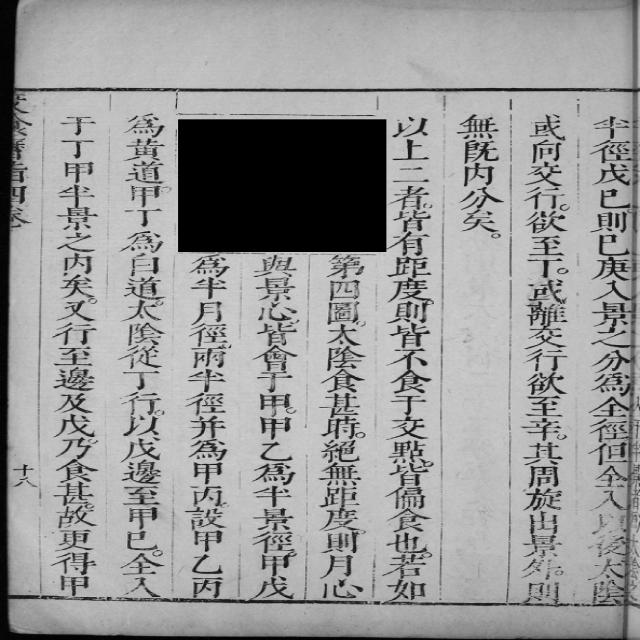 半徑戊巳則巳庚入景之分為全徑但全入以後太陰
或向交行欲至丁或離交行欲至辛其周旋出景外則
無既內分矣
以上二者皆有距度則皆不食于交點皆偏食也若如
第四圖太陰食甚時絕無距度則月心
與景心皆會于甲甲乙為半景徑甲戊
為半月徑兩半徑并為甲丙設甲乙丙
為黃道甲丁為白道太陰從丁行以戊邊至甲巳全入
于丁甲半景之內矣又行至邊及戊乃食甚故更得甲
交食曆指四卷
十八